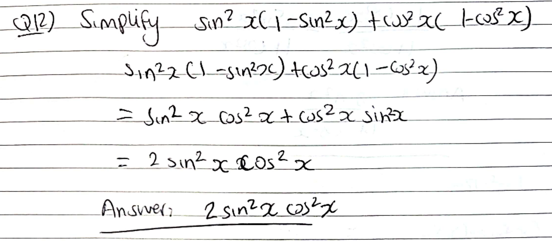 Q12) Simplify sin² x(1-sin²x) + cos² x( 1-cos² x)
sin² x (1-sin²x) + cos² x(1-cos² x)
= sin² x cos² x + cos² x sin² x
= 2 sin² x cos² x
Answer: 2 sin² x cos² x